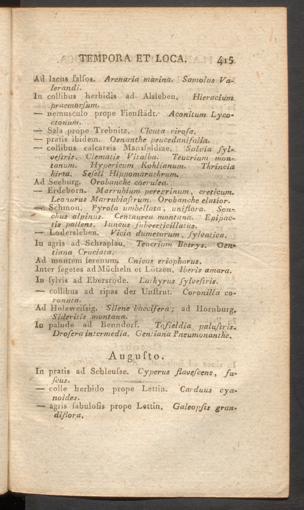 TEMPORA ET LOCA. 415
Ad lacus falfos. Arenaria marina. Samolus Va-
lerandi.
In collibus herbidis ad Alsleben. Hieracium
praemorsum.
— nemusculo prope Fienftädt. Aconitum Lyco-
ctonum.
— Sala prope Trebnitz. Cicuta virofa.
— pratis ibidem. Oenanthe peucedanifolia.
— collibus calcareis Salvia fylv-
veftris. Clematis Vitalba. Teucrium mon-
tanum. Hypericum Kohlianum. Thrincia
hirta. Sefeli Hippomarathrum.
Ad Seeburg. Orobanche coerulea.
— Erdeborn. Marrubium peregrinum, creticum.
Leonurus Marrubiaftrum. Orobanche elatior.
— Pyrola umbellata, uniflora. Son-
chus alpinus. Centaurea montana. Epipac-
tis pallens. Juncus fubverticillatus.
— Lodersleben. Vicia dumetorum, fylvatica.
In agris ad Schraplau. Teucrium Botrys. Gen-
tiana Cruciata.
Ad montem ferenum. Cnicus eriophorus.
Inter fegetes ad Mücheln et Lötzen. Iberis amara.
In fylvis ad Eberftedt. Euthyrus fylveftris.
— collibus ad ripas der Unftrut. Coronilla co-
ronata.
Ad Holzweiffig. Silene baccifera; ad Hornburg,
Sideritis montana.
In palude ad Benndorf. Tofieldia paluftris.
Drofera intermedia. Gentiana Pneumonanthe.
Augufto.
In pratis ad Schleuffe. Cyperus flavefcens, fu-
fcus.
— colle herbido prope Lettin. Carduus cya-
noides.
— agris fabulofis prope Lettin. Galeopfis gran-
diflora.